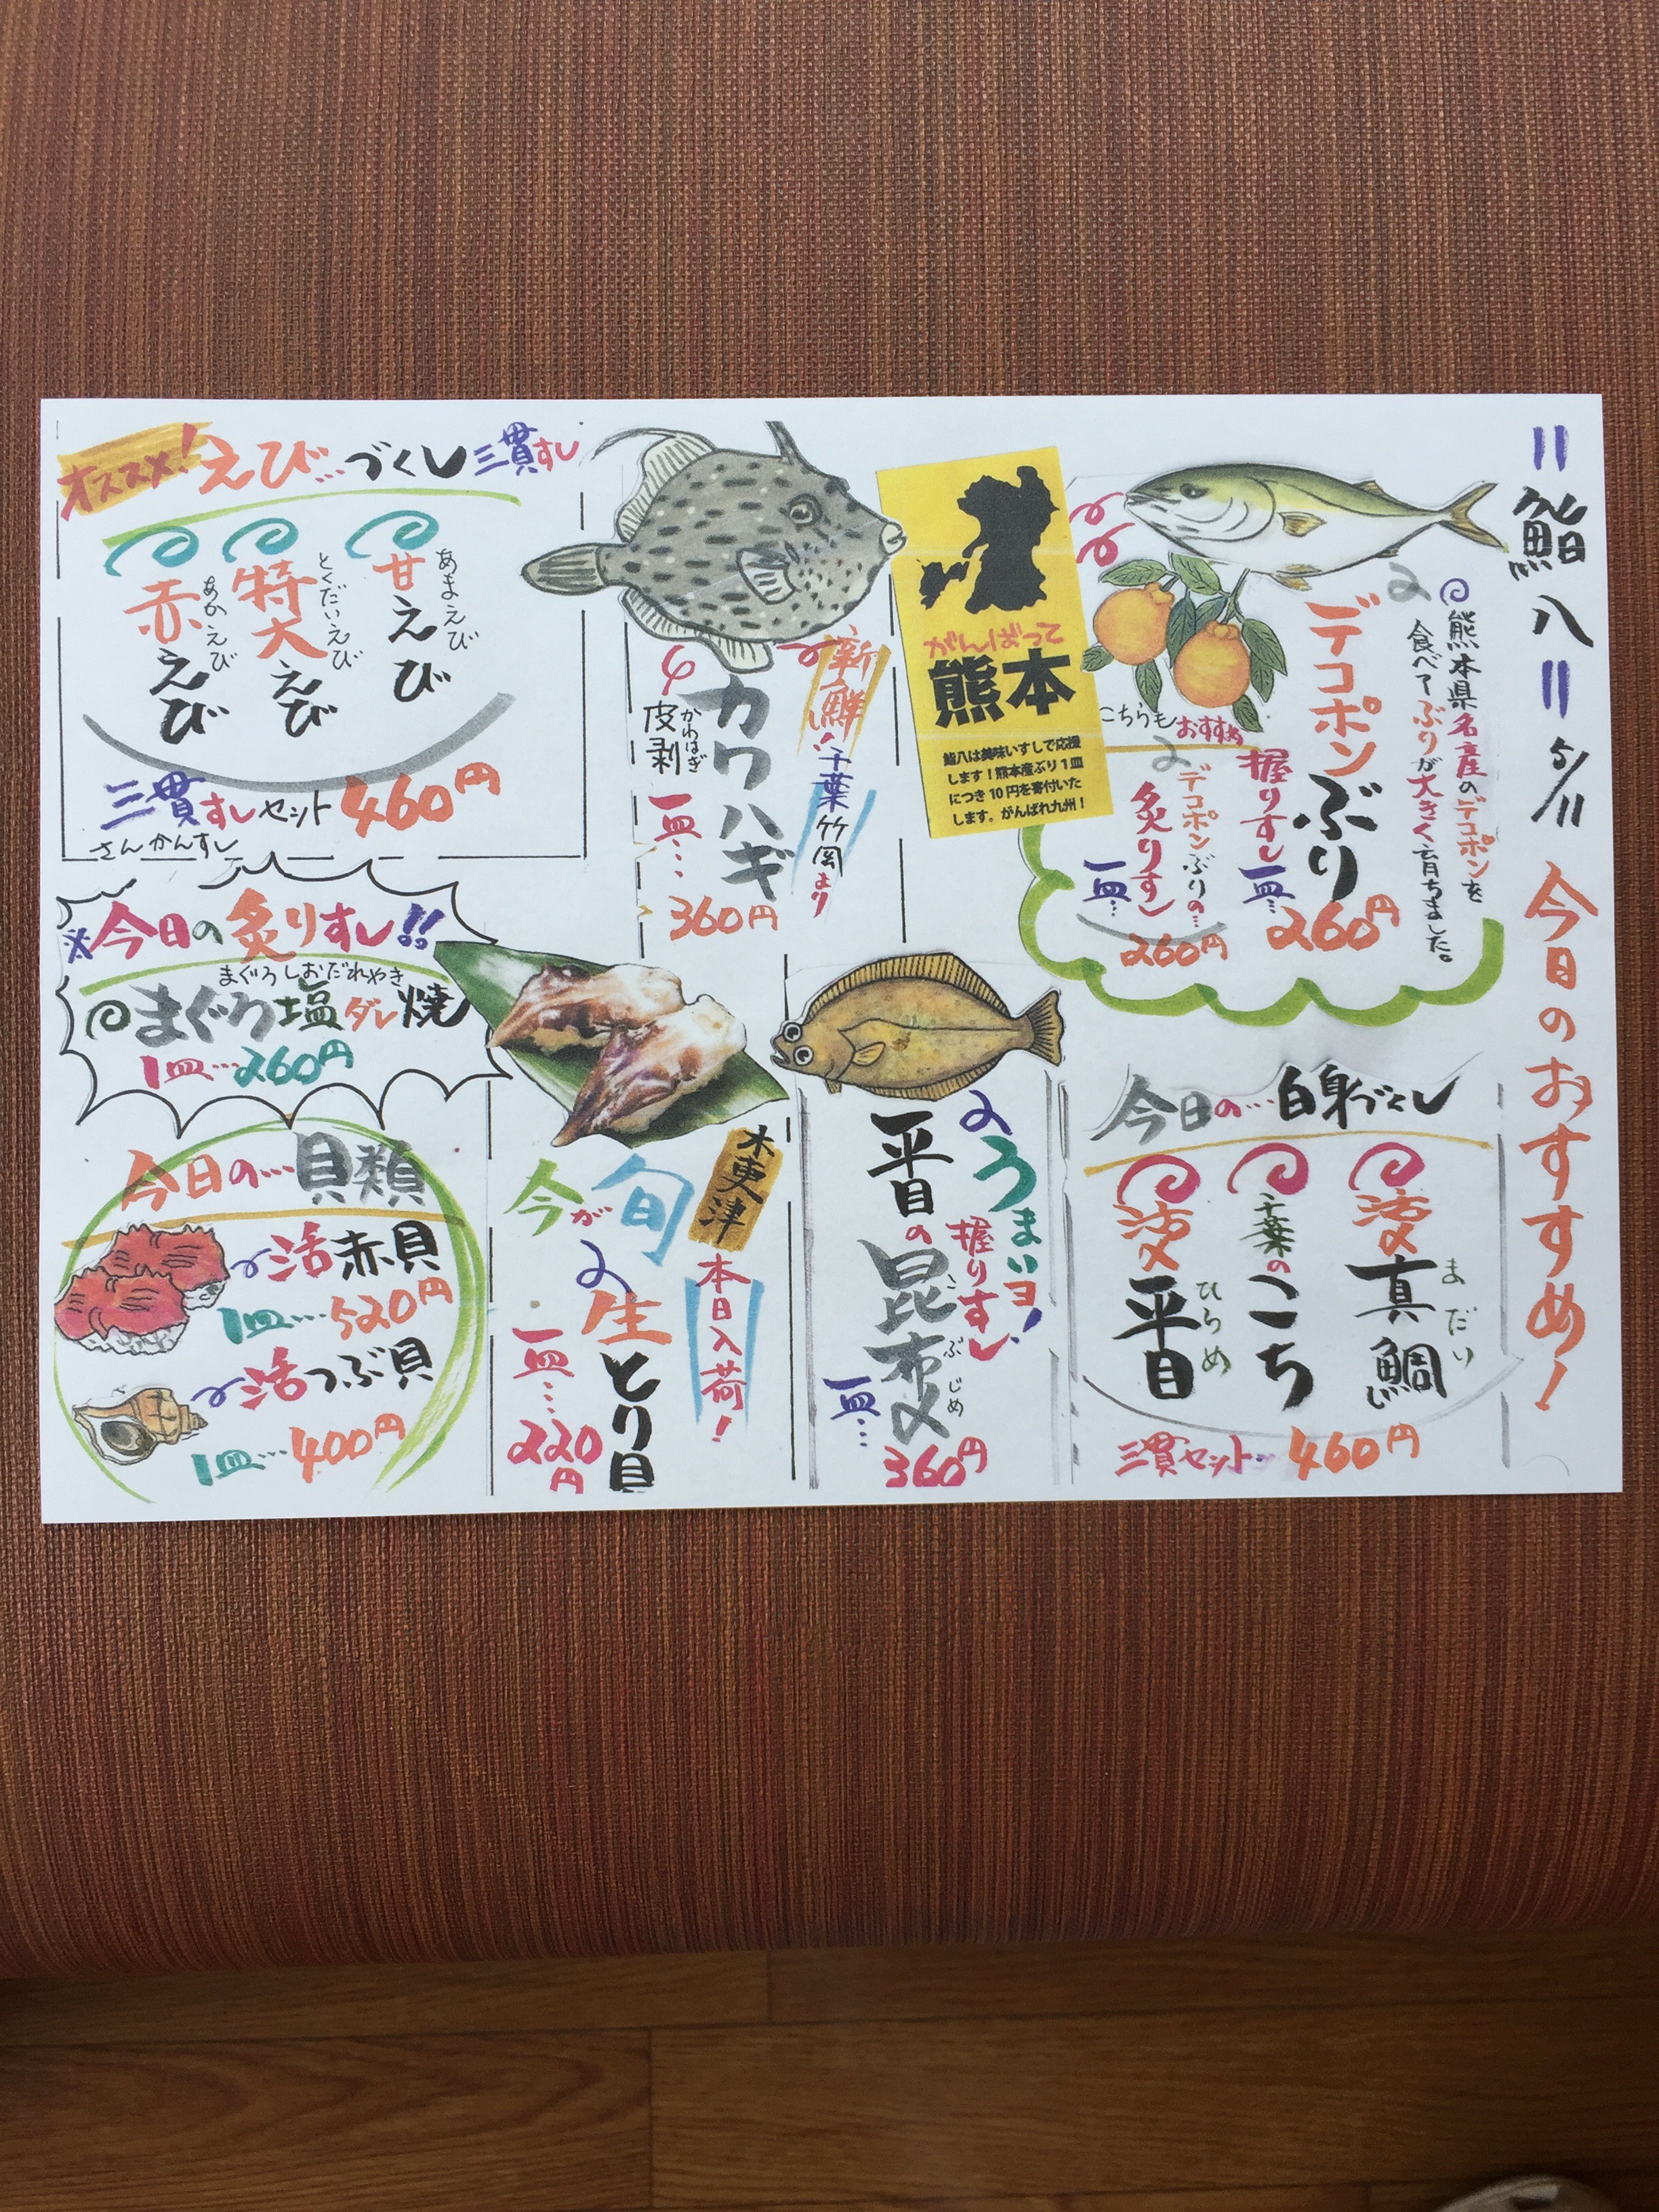 =鮨八= 5/11 今日のおすすめ!
熊本県名産のデコポンを
食べてぶりが大きく育ちました。
デコポンぶり
握りすし一皿… 260円
こちらもおすすめ
デコポンぶりの…
炙りすし
一皿… 260円
がんばって
熊本
鮨八は美味いすしで応援
します!熊本産ぶり1皿
につき10円を寄付いた
します。がんばれ九州!
新鮮!千葉竹岡より
カワハギ
かわはぎ
皮剥
一皿… 360円
オススメ!えび…づくし三貫すし
あまえび
甘えび
とくだいえび
特大えび
あかえび
赤えび
三貫すしセット460円
さんかんすし
※今日の炙りすし!!
まぐろしおだれやき
まぐろ塩ダレ焼
1皿…260円
今日の…白身づくし
活〆真鯛
まだい
千葉のこち
活〆平目
ひらめ
三貫セット…460円
うまいヨ!
握りすし
平目の昆布〆
こぶじめ
一皿… 360円
木更津
本日入荷!
今が旬
生とり貝
一皿… 220円
今日の…貝類
活赤貝
1皿…520円
活つぶ貝
1皿…400円